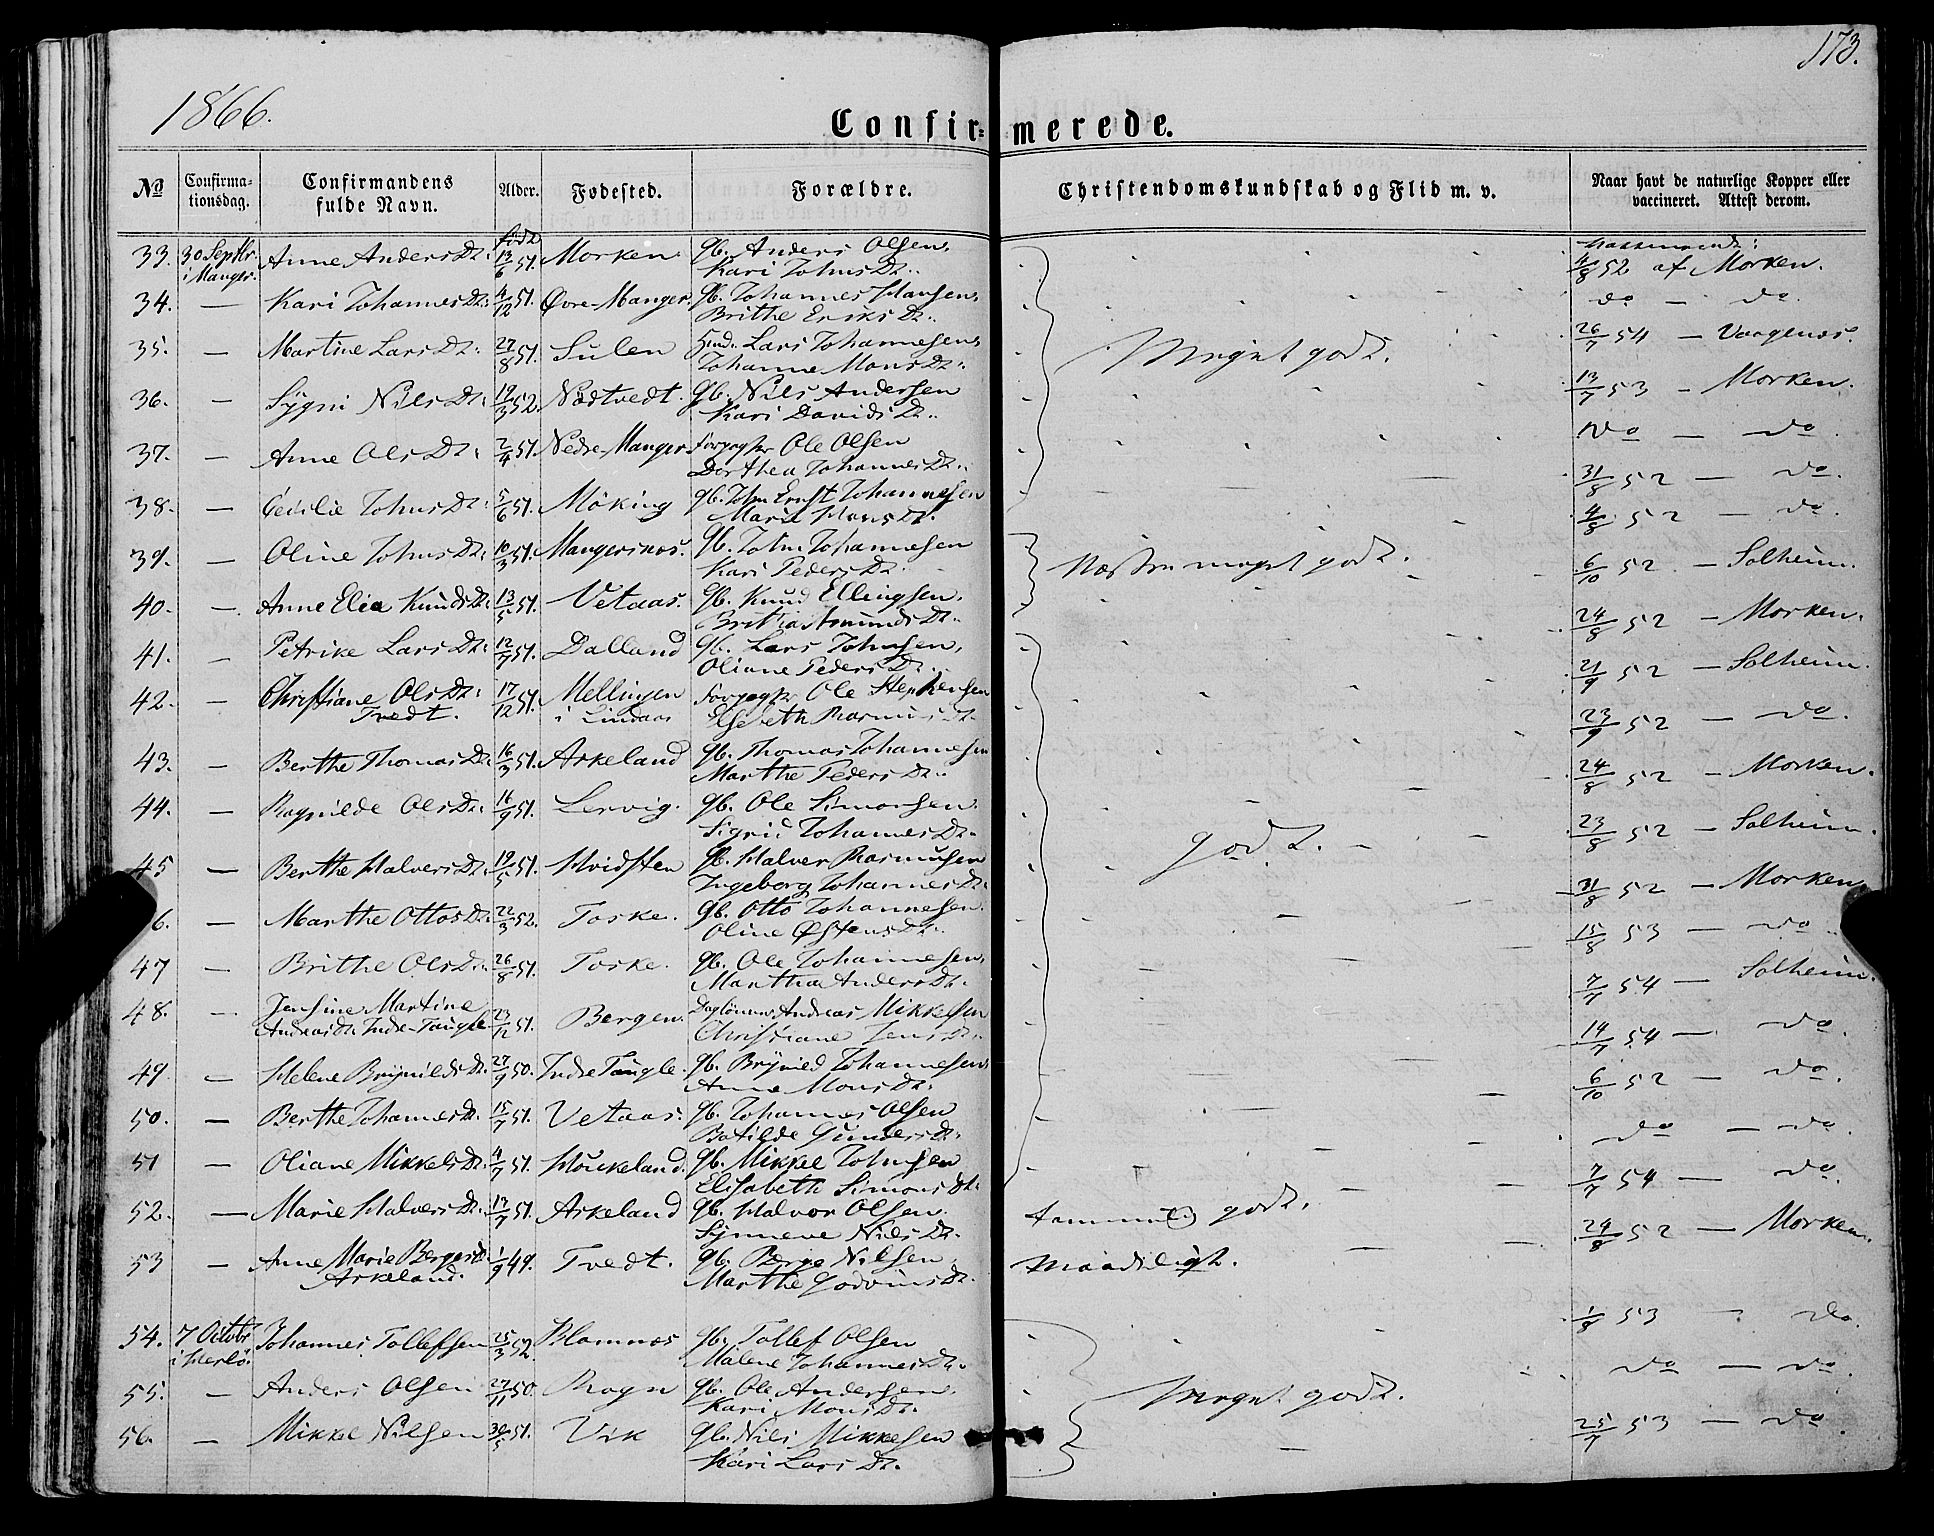 173.
1866.
Confir= merede.
No Confirma= tionsdag. Confirmandens fulde Navn. Alder. Fødested. Forældre. Christendomskundskab og Flid m. v. Naar havt de naturlige Kopper eller vaccineret. Attest derom.
33. 30 Septbr. i Manger. Anne AndersDt: født 13/6 51. Morken Gb. Anders Olsen, Kari JohnsDt: vaccinered: 4/8 52 af Morken.
34. — Kari JohannesDt: 4/12 51. Øvre-Manger. Gb. Johannes Hansen, Brithe EriksDt: do — do.
35. — Martine LarsDt: 27/8 51. Sulen Lars Johannesen, Johanne MonsDt: Meget godt. 26/7 54 — Vaagenes.
36. — Sygni NilsDt: 19/3 52. Nødtvedt. Gb. Nils Andersen Kari DavidsDt: 13/7 53 — Morken.
37. — Anne OlsDt: 2/4 51. Nedre-Manger Ole Olsen Dorthea JohannesDt: Do — do.
38. — Cecilie JohnsDt: 5/6 51. Möking Gb. John Ernst Johannesen Marie HansDt: 31/8 52 — do.
39. — Oline JohnsDt: 10/3 51. Mangersnes. Gb. John Johannesen Kari PedersDt: Næsten meget godt. 4/8 52 — do.
40. — Anne Elia KnudsDt: 13/5 51. Vetaas. Gb. Knud Ellingsen, Britha AmundsDt: 6/10 52 — Solheim.
41. — Petrike LarsDt: 12/7 51. Dalland Gb. Lars Johnsen, Oliane PedersDt: 24/8 52 — Morken.
42. — Christiane OlsDt: Tvedt. 17/12 51. Mellingen i Lindaas Ole Stephensen Elsebeth RasmusDt: 21/9 52 — Solheim.
43. — Berthe ThomasDt: 16/3 51. Askeland Gb. Thomas Johannesen Marthe PedersDt: 23/9 52 — do.
44. — Ragnilde OlsDt: 16/9 51. Lervig. Gb. Ole Simonsen Sigrid JohannesDt: godt. 24/8 52 — Morken.
45 — Berthe HalversDt: 19/5 51. Hvidsten Gb. Halver Rasmusen Ingeborg JohannesDt: 23/8 52 — Solheim.
6. — Marthe OttosDt: 22/3 52. Toske. Gb. Otto Johannesen. Oline ØstensDt: 31/8 52 — Morken
47 — Brithe OlsDt: 26/8 51. Toske. Gb. Ole Johannesen, Martha AndersDt: 15/8 53 — do.
48. — Jensine Martine AndreasDt: Indre-Tangle 23/12 51. Bergen. Daglönner Andreas Mikkelsen Christiane JensDt: 7/7 54 — Solheim.
49 — Helene BrynildsDt: 27/9 50. Indre Tangle. Gb. Brynild Johannesen, Anne MonsDt: 14/7 54 — do.
50. — Berthe JohannesDt: 15/7 51. Vetaas. Gb. Johannes Olsen Botilde GundersDt: 6/10 52 — do.
51 — Oliane MikkelsDt: 4/7 51. Höukeland. Gb. Mikkel Johnsen Elisabeth SimonsDt: do — do.
52. — Marie HalversDt: 17/7 51. Askeland Gb. Halvor Olsen. Synneve NilsDt: temmelig godt. 7/7 54 — do.
53 — Anne Marie BergesDt: Askeland. 1/9 49. Tvedt. Gb. Berge Nilsen, Marthe GodvinsDt: Maadeligt. 24/8 52 — Morken.
54. 7 Octobr i Herlö. Johannes Tollefsen 25/3 52. Blomnes Gb. Tollef Olsen Malene JohannesDt: 1/8 53 — do.
55. — Anders Olsen 27/11 50. Rogn Gb. Ole Andersen. Kari MonsDt: Meget godt. do — do.
56. — Mikkel Nilsen 30/5 51. Vik Gb. Nils Mikkelsen Kari LarsDt: 25/7 53 — do.